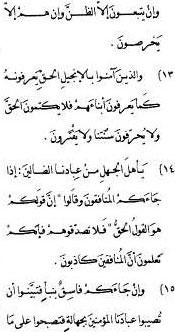 وإن يتبعون إلا الظن وإن هم إلا
يخرصون .
١٣) والذين آمنوا بالإنجيل الحق يعرفونه
كما يعرفون أبناءهم فلا يكتمون الحق
ولا يحرفون سنتنا ولا يفترون .
١٤) يا أهل الجهل من عبادنا الضالين : إذا
جاءكم المنافقون وقالوا " إن قولكم
هو القول الحق " فلا تصدقوهم فإنكم
تعلمون أن المنافقين كاذبون .
١٥) وإن جاءكم فاسق بنبإ فتبينوا أن
تصيبوا عبادنا المؤمنين بجهالة فتصبحوا على ما